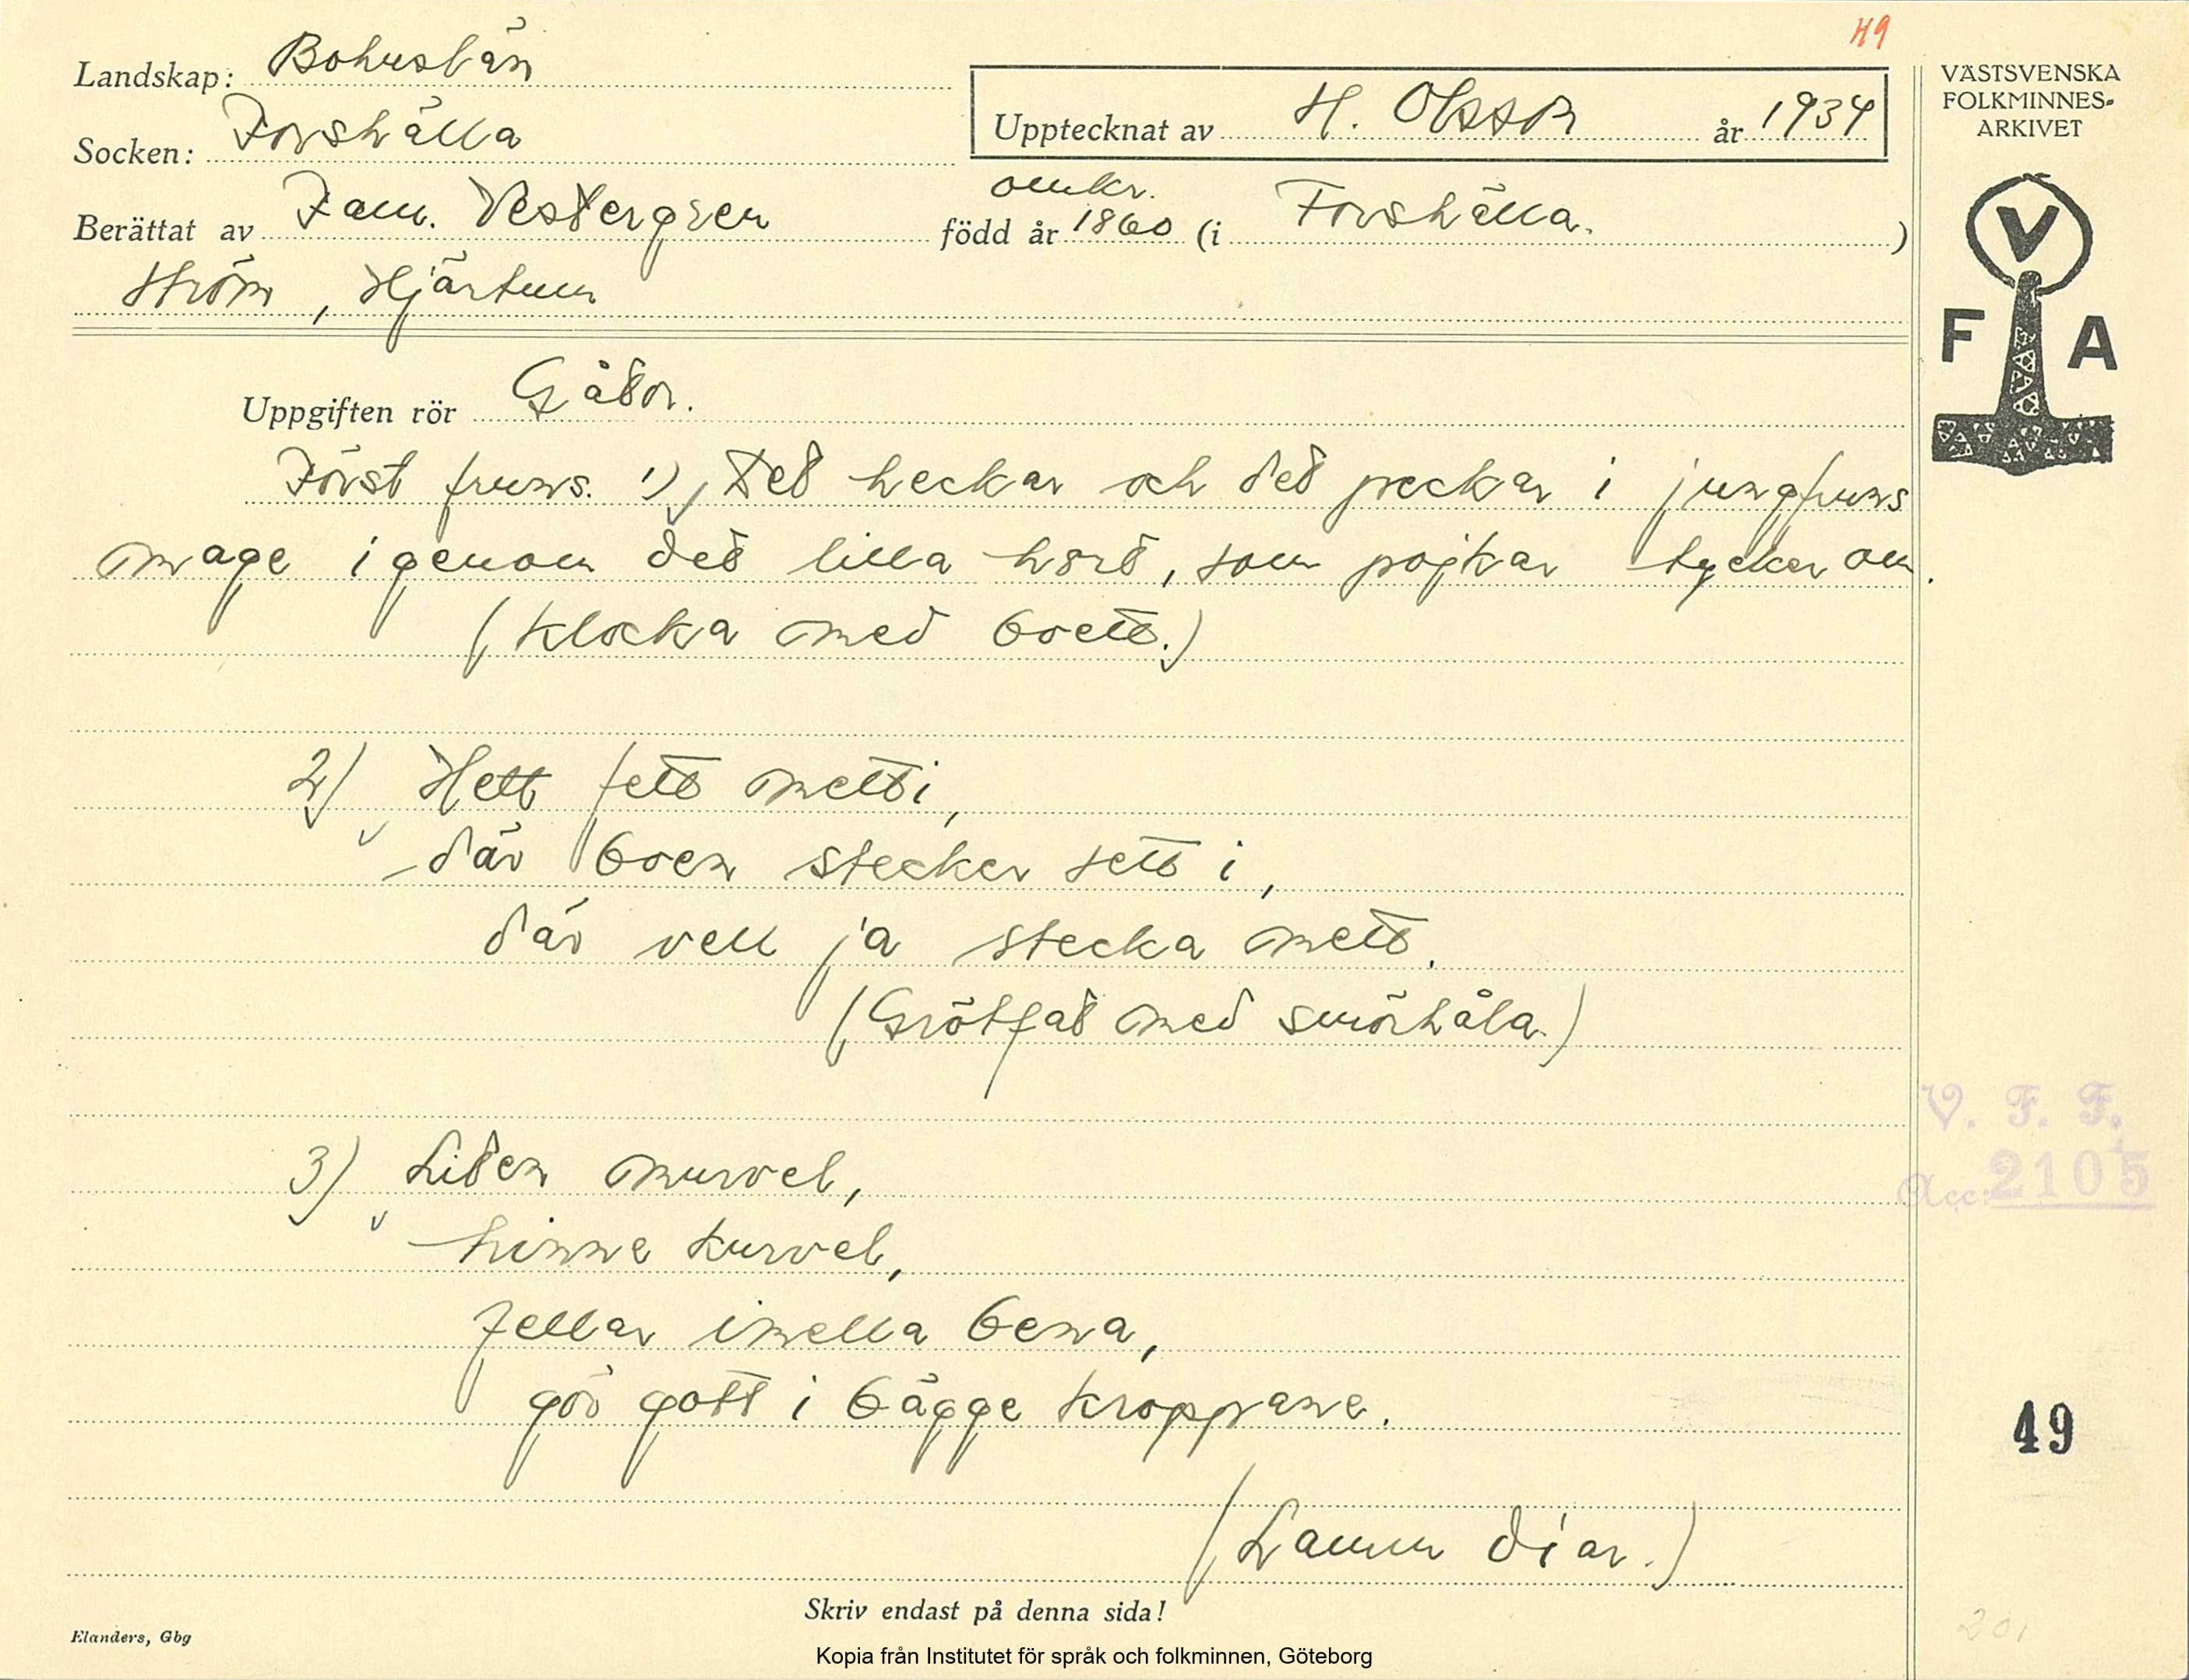 49
Landskap: Bohuslän
Socken: Forshälla
Upptecknat av H. Olsson år 1934
Berättat av Fam. Vestergren född år omkr. 1860 (i Forshälla.)
Ström, Hjärtum
VÄSTSVENSKA
FOLKMINNES-
ARKIVET
V
F A
Uppgiften rör Gåtor.
Först 1) Det heckar och det peckar i jungfruns
mage igenom det lilla hord, som pojkar tycker om.
(Klocka med boett.)
2) Hett fett metti,
där boen stecker sett i,
där vell ja stecka mett.
(Grötfat med smörhåla.)
3) Liten murvel,
hinne kurvel,
fellar imella bena,
gör gott i bägge kroppane.
(Lamm diar.)
V. F. F.
Acc: 2105
49
Skriv endast på denna sida!
Elanders, Gbg
Kopia från Institutet för språk och folkminnen, Göteborg